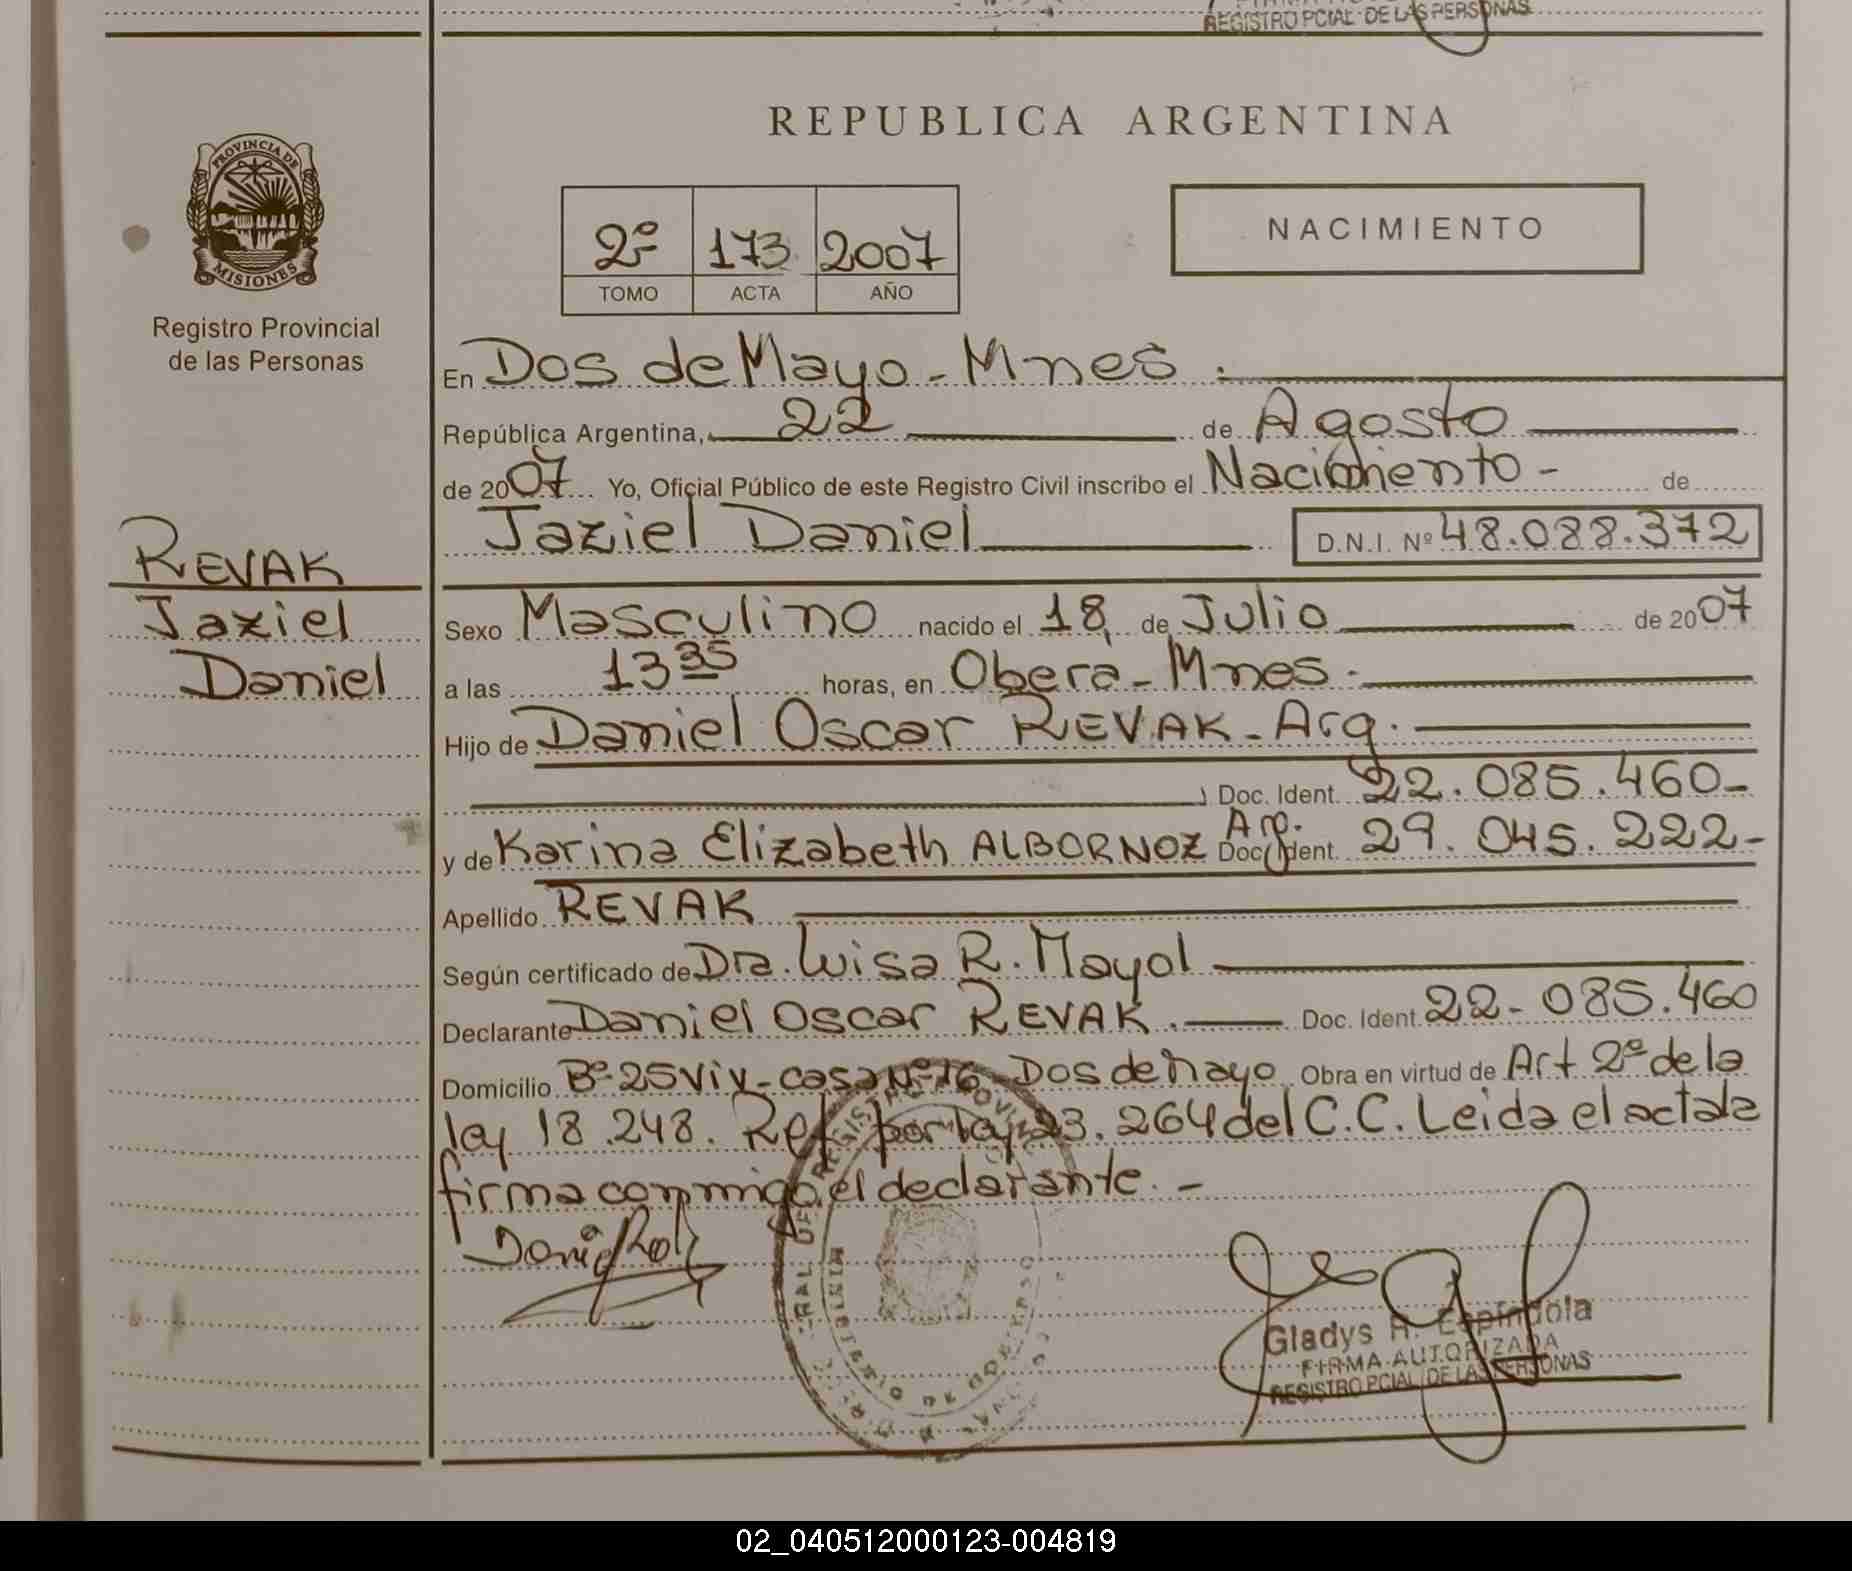 REGISTRO PCIAL DE LAS PERSONAS
REPUBLICA ARGENTINA
PROVINCIA DE
MISIONES
Registro Provincial
de las Personas
2º 173 2007
TOMO ACTA AÑO
NACIMIENTO
En Dos de Mayo - Mnes.
República Argentina, 22 de Agosto
de 2007 Yo, Oficial Público de este Registro Civil inscribo el Nacimiento - de
Jaziel Daniel D.N.I. Nº 48.088.372
REVAK
Jaziel
Daniel
Sexo Masculino nacido el 18 de Julio de 2007
a las 13 35 horas, en Obera - Mnes.
Hijo de Daniel Oscar REVAK - Arg.
Doc. Ident. 22.085.460-
y de Karina Elizabeth ALBORNOZ Arg. Doc. Ident. 29.045.222-
Apellido REVAK
Según certificado de Dra. Luisa R. Mayol
Declarante Daniel Oscar REVAK. Doc. Ident. 22-085.460
Domicilio Bº 25 Viv - casa Nº 16 Dos de Mayo Obra en virtud de Art 2º de la
ley 18.248. Ref por ley 23.264 del C.C. Leida el acta la
firma conmigo el declarante. -
Gladys A. Espíndola
FIRMA AUTORIZADA
REGISTRO PCIAL DE LAS PERSONAS
02_040512000123-004819